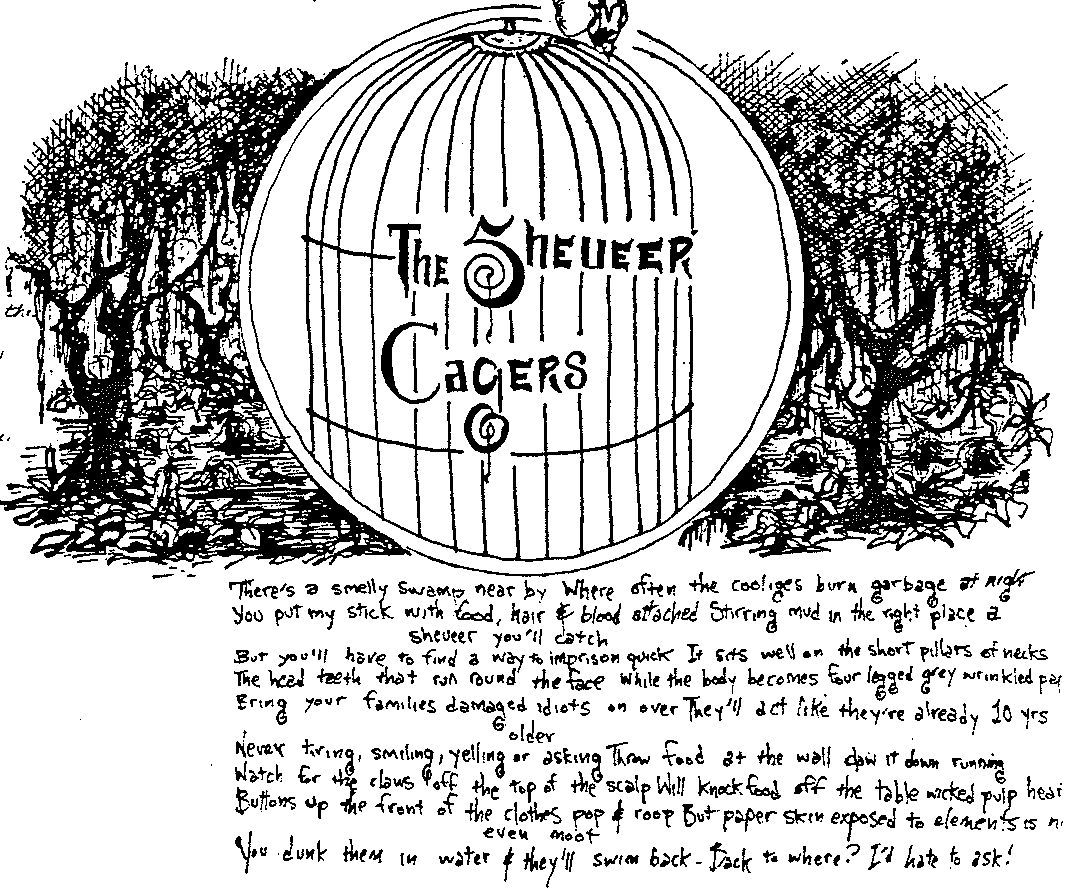 The Sheueer
Cagers
the
There's a smelly swamp near by Where often the cooliges burn garbage at night
You put my stick with food, hair & blood attached Stirring mud in the right place a
sheueer you'll catch
But you'll have to find a way to imprison quick It sits well on the short pillars of necks
The head teeth that run round the face While the body becomes four legged grey wrinkled
Bring your families damaged idiots on over They'll act like they're already 10 yrs
older
Never tiring, smiling, yelling or asking Throw food at the wall claw it down running
Watch for the claws off the top of the scalp Will knock food off the table wicked pulp
Buttons up the front of the clothes pop & roop But paper skin exposed to elements is
even moot
You dunk them in water & they'll swim back - Back to where? I'd hate to ask!